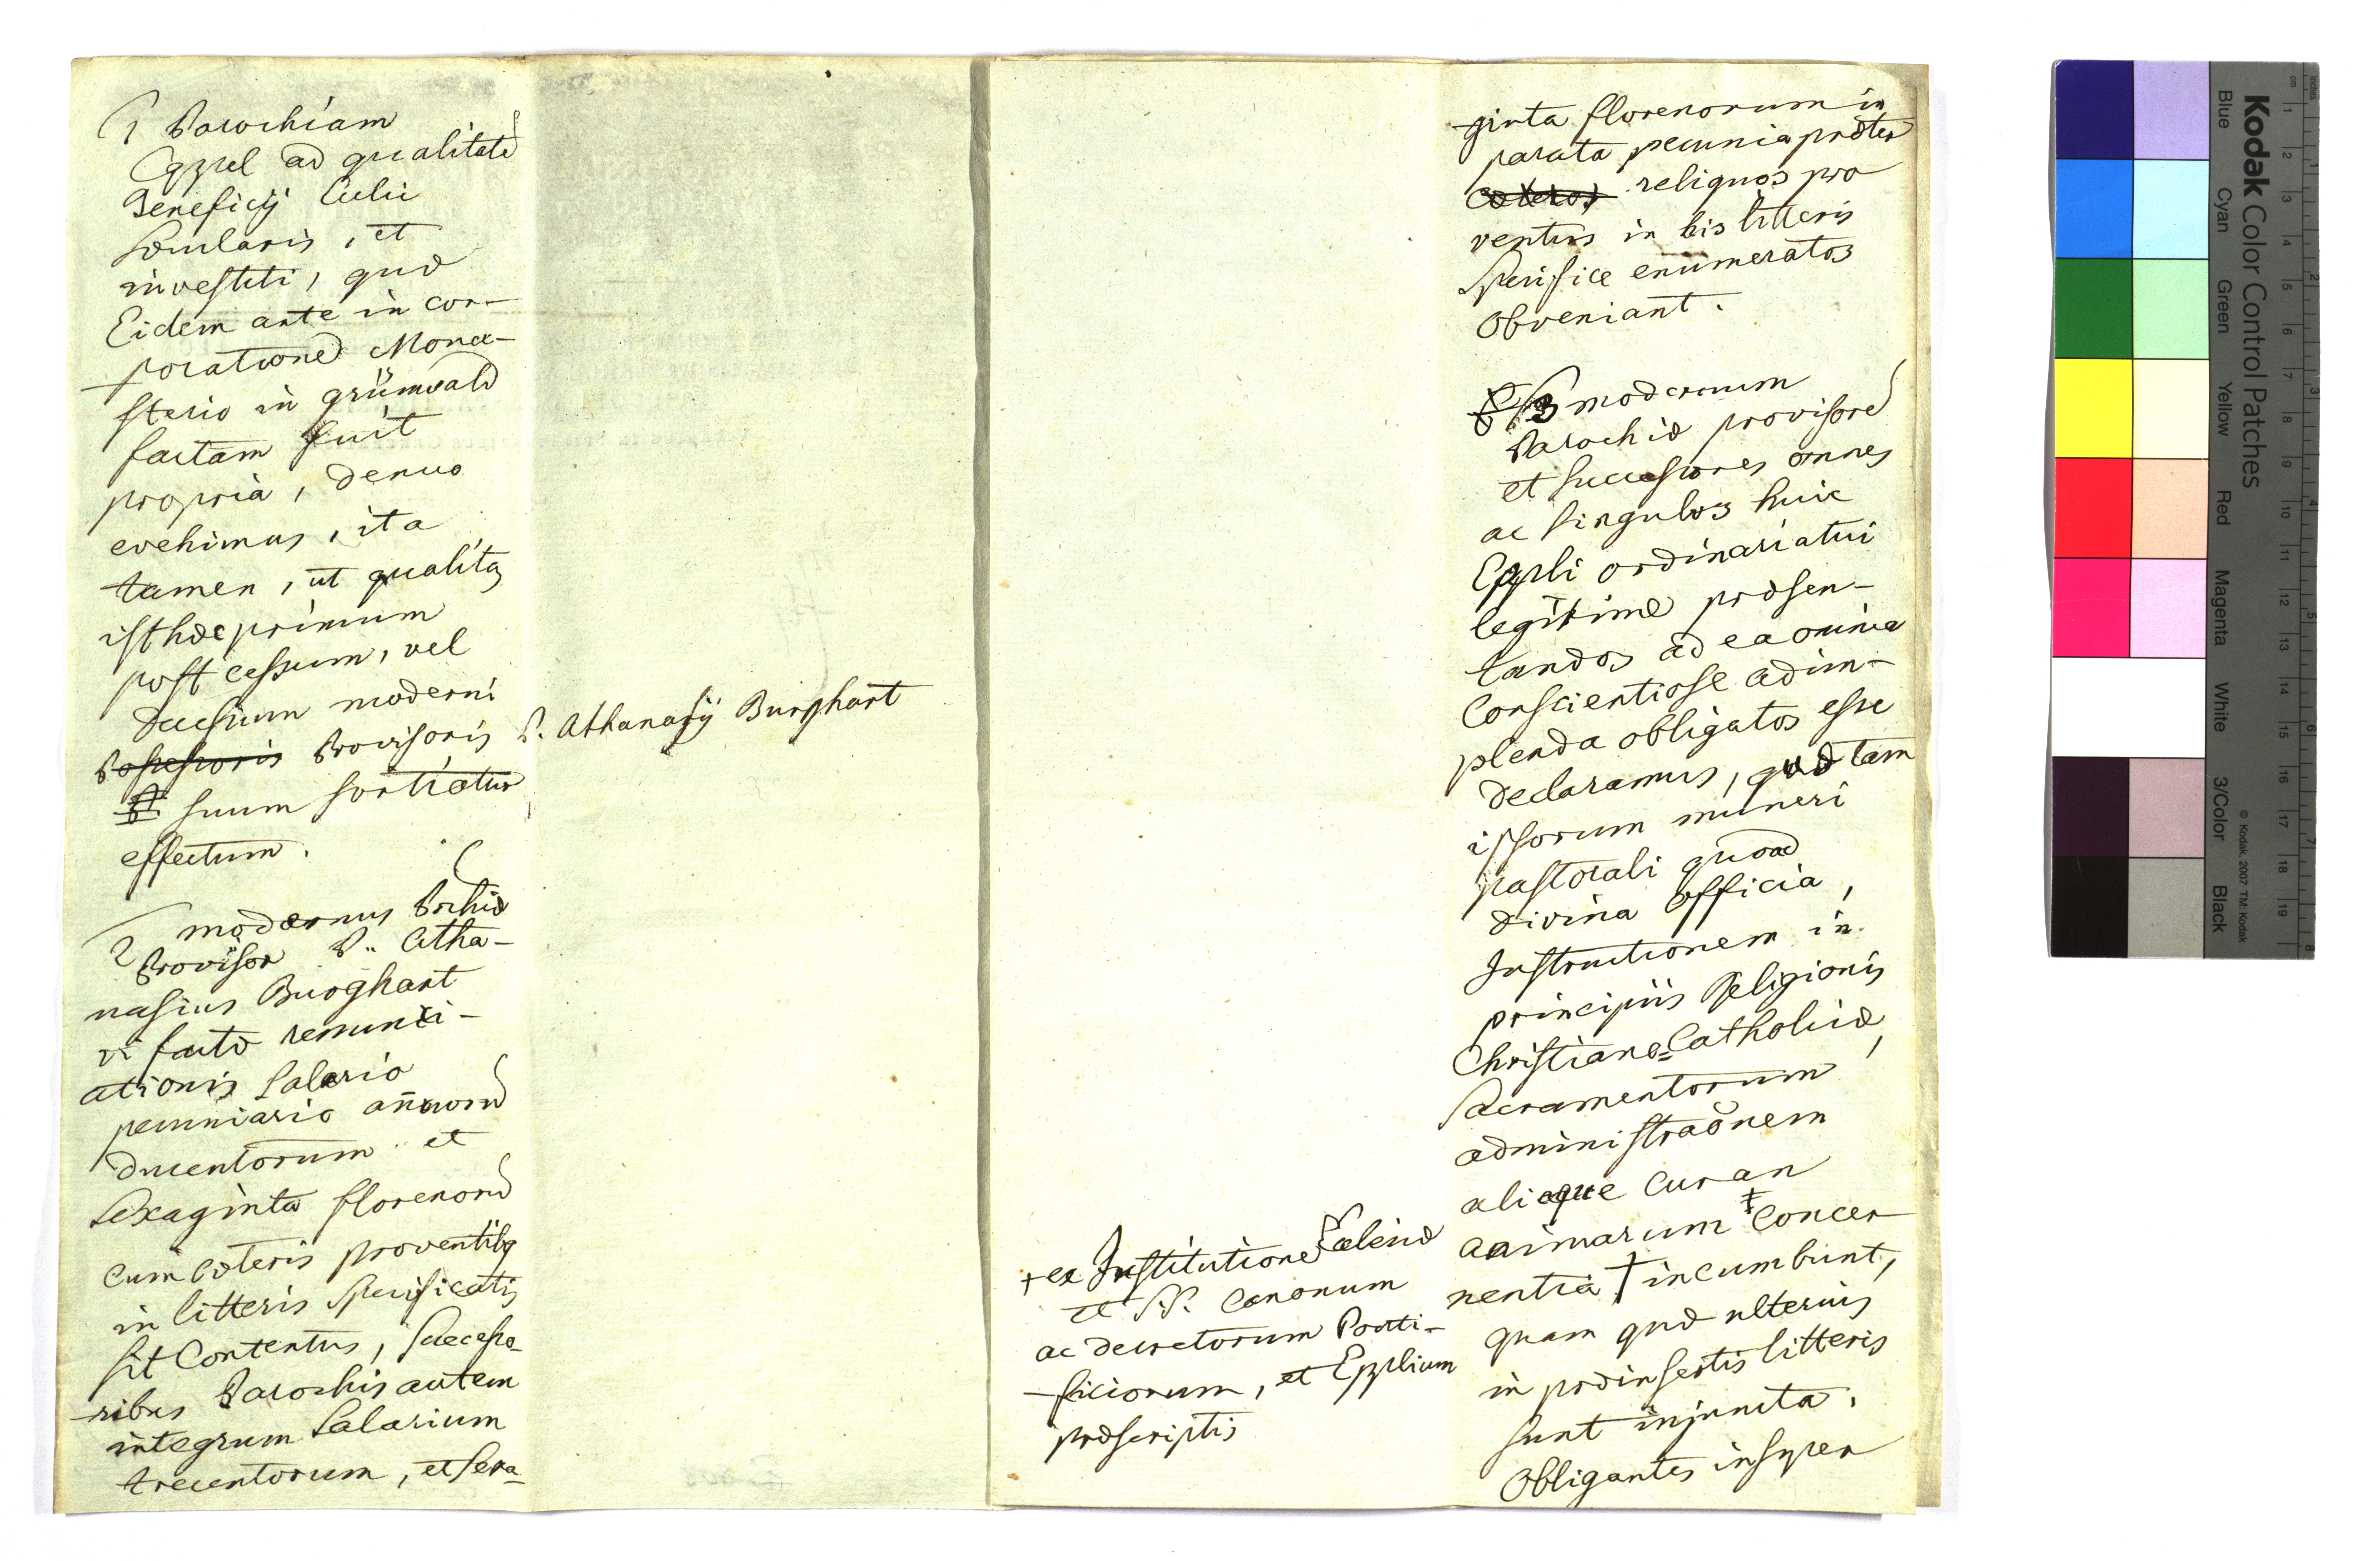 1 Parochiam
Eppel ad qualitatē
Beneficij Cleri
Sæcularis, et
investiti, quæ
Eidem ante in cor-
poratione Mona-
sterio in grünwald
factam fuit
propria, denuo
evehimus, ita
tamen, ut qualitas
isthæc primum
post cessum, vel
decessum moderni
Possessoris Provisoris P. Athanasij Burghart
suum sortiatur
effectum.
2 modernus Pchiæ
Provisor P. Atha-
nasius Burghart
vi factæ renunci-
ationis Salario
pecuniario annuorū
ducentorum et
Sexaginta florenorū
cum cæteris proventibq
in litteris Specificatis
sit Contentus, Successo-
ribus Parochis autem
integrum Salarium
trecentorum, et sexa-
ginta florenorum in
parata pecunia præter
cæteros reliquos pro
ventus in his litteris
Specifice enumeratos
obveniant.
3 modernum
Parochiæ provisorē
et successores omnes
ac singulos huic
Eppli ordinariatui
legitime præsen-
tandos ad ea omnia
Conscientiose adim-
plenda obligatos esse
declaramus, quæ tam
ipsorum muneri
pastorali quoad
divina officia,
Instructionem in
principiis Religionis
Christiano=Catholicæ,
Sacramentorum
administraõnem
alieque Curan
animarum ‡ Concer
nentia † incumbunt,
quam quæ ulterius
in præinsertis litteris
sunt injuncta.
Obligantes insuper
+ ex Institutione Ecclesiæ
et SS. Canonum
ac decretorum Ponti-
ficiorum, et Epplium
præscriptis